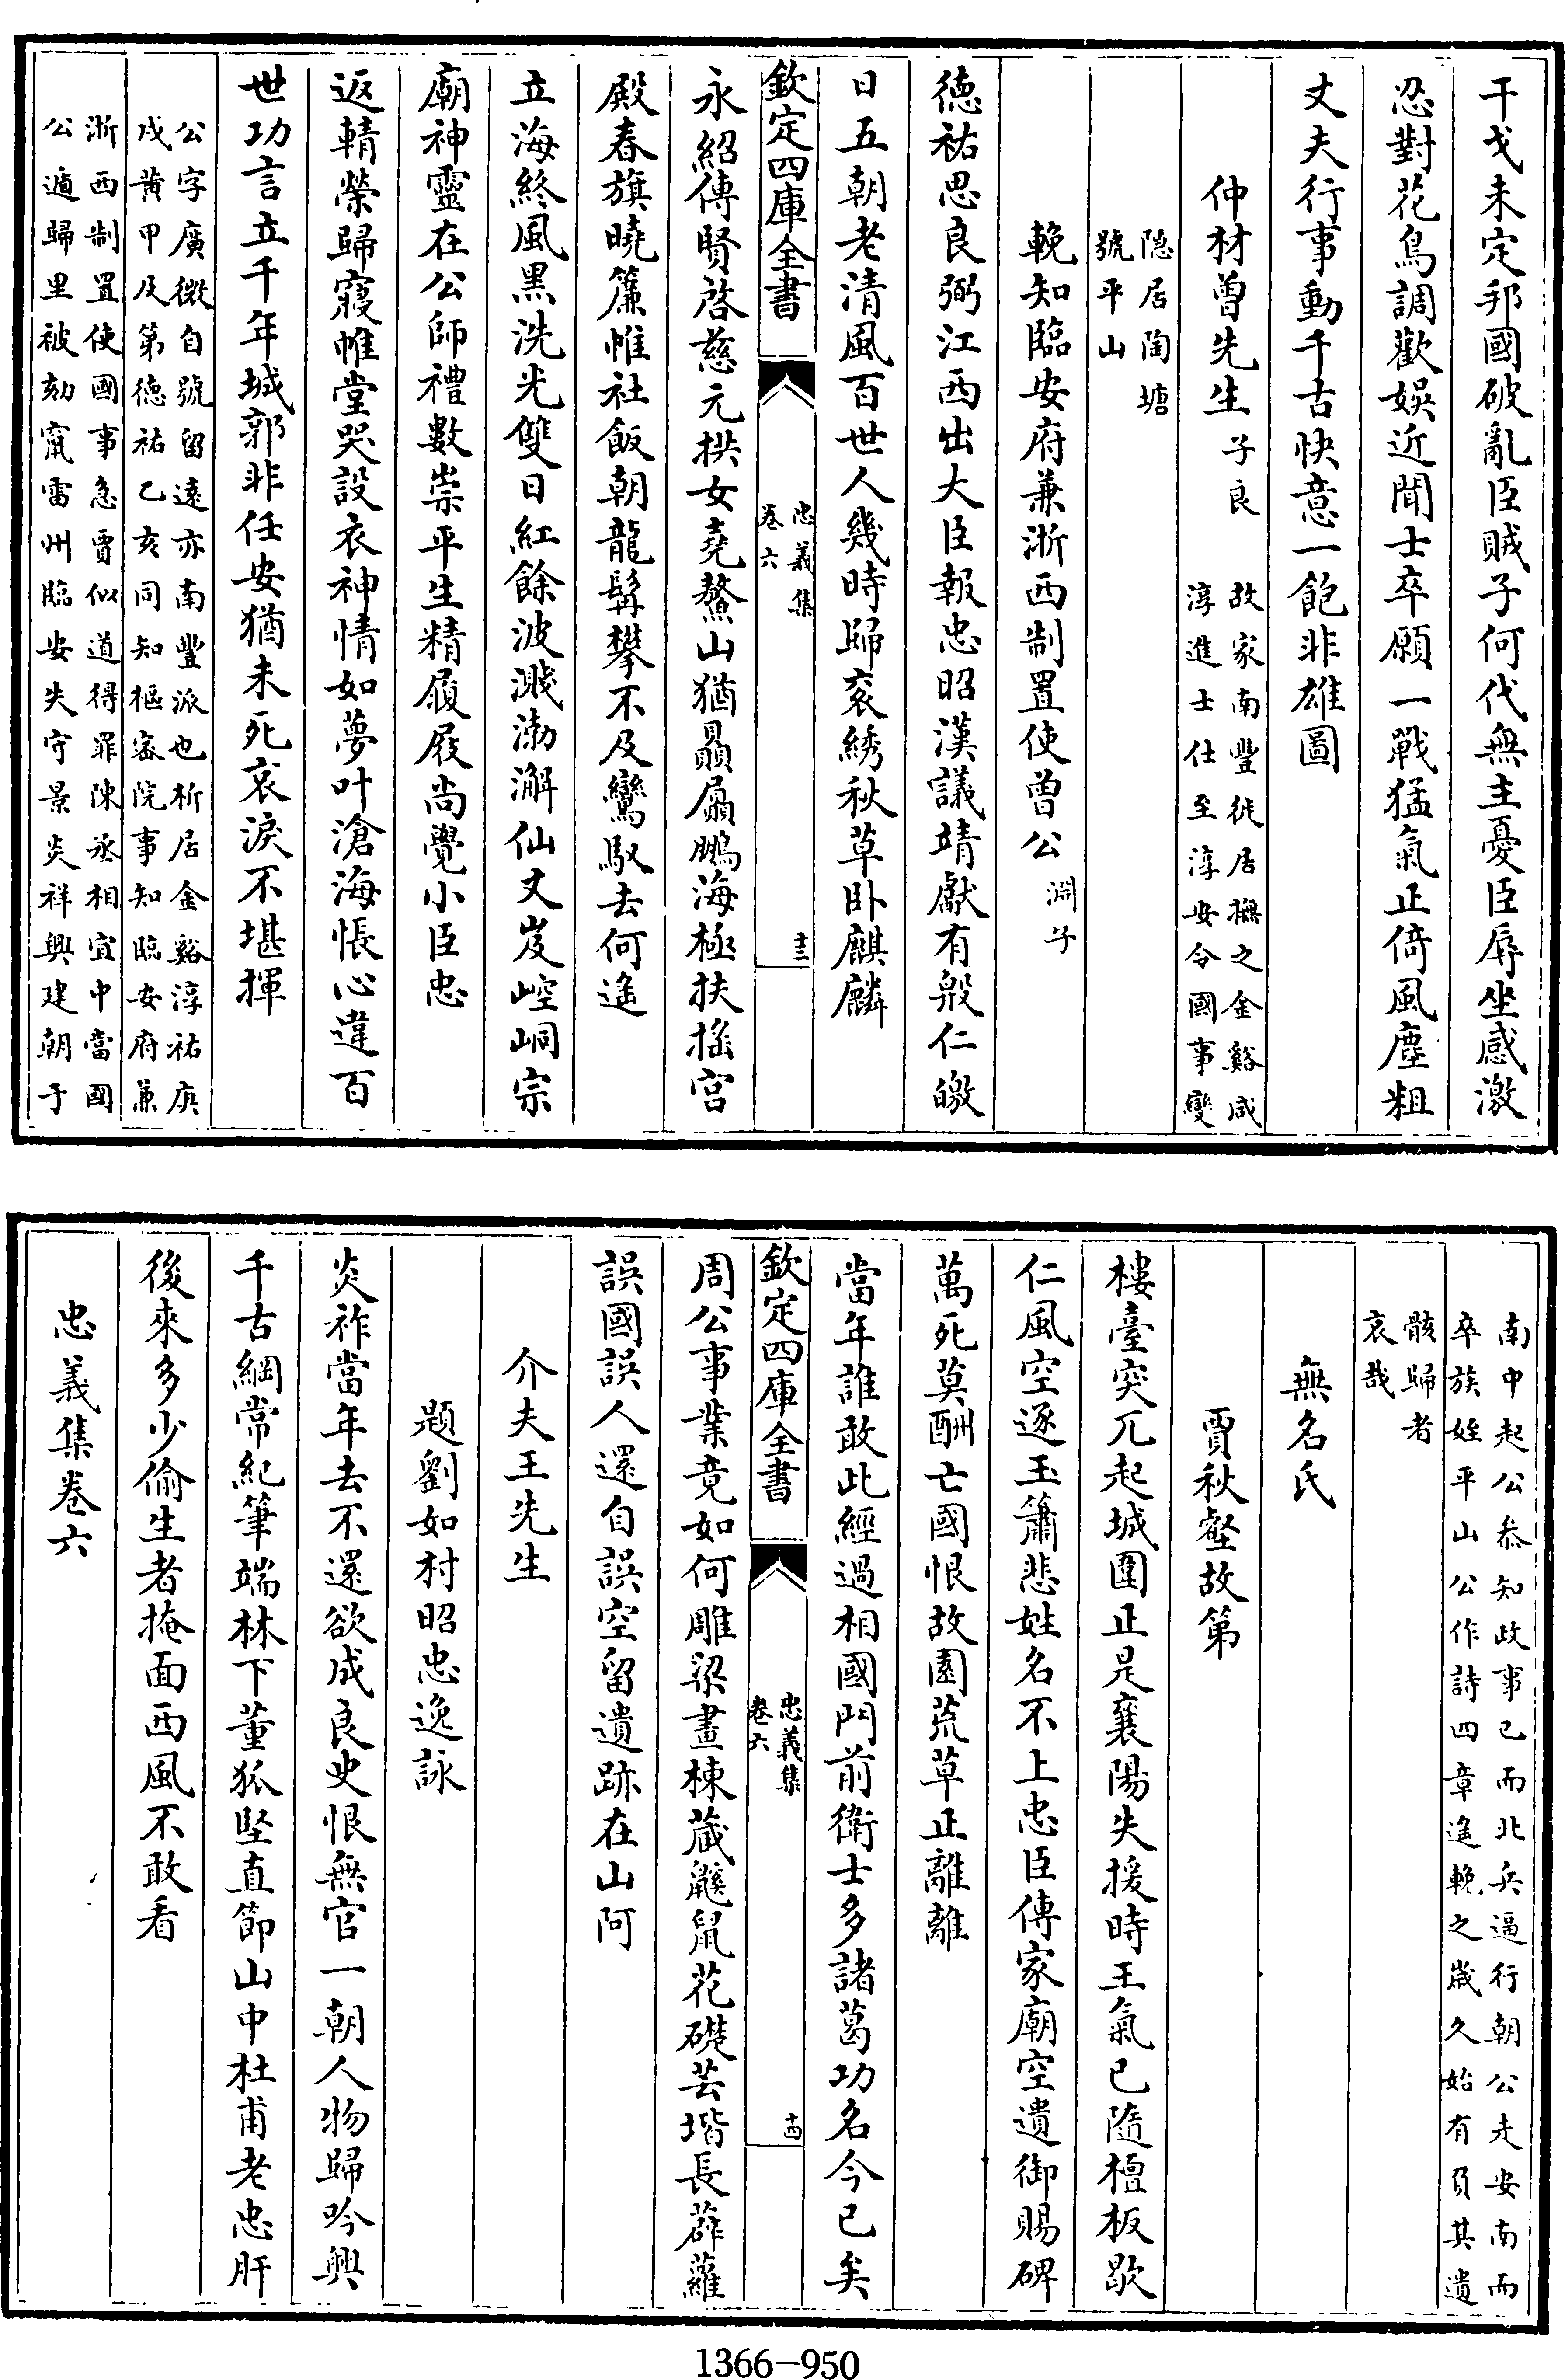 干戈未定邦國破亂臣賊子何代無主憂臣辱坐感激
忍對花鳥調歡娛近聞士卒願一戰猛氣正倚風塵粗
丈夫行事動千古快意一飽非雄圖
仲材曽先生子良
故家南豐徙居撫之金谿咸
淳進士仕至淳安令國事變
隠居陶塘
號平山
輓知臨安府兼浙西制置使曽公淵子
徳祐思良弼江西出大臣報忠昭漢議靖獻有殷仁皦
日五朝老清風百世人幾時歸衮綉秋草卧麒麟
欽定四庫全書
忠義集
卷六
十三
永紹傳賢啓慈元拱女堯鰲山猶贔屭鵬海極扶揺宫
殿春旗曉簾帷社飯朝龍髯攀不及鸞馭去何遥
立海終風黒洗光雙日紅餘波濺渤澥仙丈岌崆峒宗
廟神靈在公師禮數崇平生精履屐尚覺小臣忠
返輤榮歸窾帷堂哭設衣神情如夢叶滄海悵心違百
世功言立千年城郭非任安猶未死哀淚不堪揮
公字廣微自號留逺亦南豐派也析居金谿淳祐庚
戌黄甲及第徳祐乙亥同知樞宻院事知臨安府兼
浙西制置使國事急賈似道得罪陳丞相宜中當國
公遁歸里被劾竄雷州臨安失守景炎祥興建朝于
南中起公叅知政事已而北兵逼行朝公走安南而
卒族姪平山公作詩四章遥輓之歳久始有負其遺
骸歸者
哀哉
無名氏
賈秋壑故第
樓臺突兀起城圍正是襄陽失援時王氣已隨檀板歇
仁風空逐玉簫悲姓名不上忠臣傳家廟空遺御賜碑
萬死莫酬亡國恨故園荒草正離離
當年誰敢此經過相國門前衛士多諸葛功名今已矣
欽定四庫全書
忠義集
卷六
十四
周公事業竟如何雕梁畫棟藏鼷鼠花礎芸堦長薜蘿
誤國誤人還自誤空留遺跡在山阿
介夫王先生
題劉如村昭忠逸詠
炎祚當年去不還欲成良史恨無官一朝人物歸吟興
千古綱常紀筆端林下董狐堅直節山中杜甫老忠肝
後來多少偷生者掩面西風不敢看
忠義集卷六
1366-950